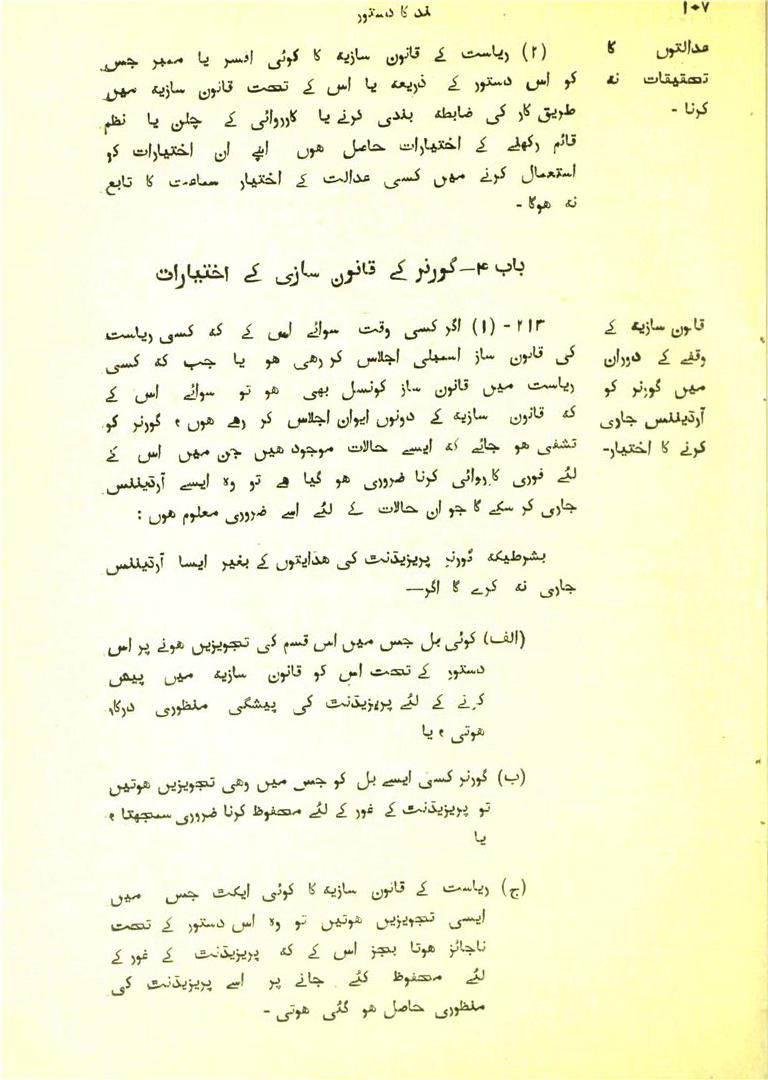 ند کا دستور
۱۰۷
عدالتوں کا
تحقیقات نہ
کرنا -
(۲) ریاست کے قانون سازیہ کا کوئی افسر یا ممبر جس
کو اس دستور کے ذریعہ یا اس کے تحت قانون سازیہ میں
طریق کار کی ضابطہ بندی کرنے یا کارروائی کے چلن یا نظم
قائم رکھنے کے اختیارات حاصل ہوں اپنے ان اختیارات کو
استعمال کرنے میں کسی عدالت کے اختیار سماعت کا تابع
نہ ہوگا -
باب ۴—گورنر کے قانون سازی کے اختیارات
قانون سازیہ کے
وقفے کے دوران
میں گورنر کو
آرڈیننس جاری
کرنے کا اختیار-
۲۱۳ - (۱) اگر کسی وقت سوائے اس کے کہ کسی ریاست
کی قانون ساز اسمبلی اجلاس کر رہی ہو یا جب کہ کسی
ریاست میں قانون ساز کونسل بھی ہو تو سوائے اس کے
کہ قانون سازیہ کے دونوں ایوان اجلاس کر رہے ہوں ، گورنر کو
تشفی ہو جائے کہ ایسے حالات موجود ہیں جن میں اس کے
لئے فوری کارروائی کرنا ضروری ہو گیا ہے تو وہ ایسے آرڈیننس
جاری کر سکے گا جو ان حالات کے لئے اسے ضروری معلوم ہوں :
بشرطیکہ گورنر پریزیڈنٹ کی ہدایتوں کے بغیر ایسا آرڈیننس
جاری نہ کرے گا اگر—
(الف) کوئی بل جس میں اس قسم کی تجویزیں ہونے پر اس
دستور کے تحت اس کو قانون سازیہ میں پیش
کرنے کے لئے پریزیڈنٹ کی پیشگی منظوری درکار
ہوتی ، یا
(ب) گورنر کسی ایسے بل کو جس میں وہی تجویزیں ہوتیں
تو پریزیڈنٹ کے غور کے لئے محفوظ کرنا ضروری سمجھتا ،
یا
(ج) ریاست کے قانون سازیہ کا کوئی ایکٹ جس میں
ایسی تجویزیں ہوتیں تو وہ اس دستور کے تحت
ناجائز ہوتا بجز اس کے کہ پریزیڈنٹ کے غور کے
لئے محفوظ کئے جانے پر اسے پریزیڈنٹ کی
منظوری حاصل ہو گئی ہوتی -